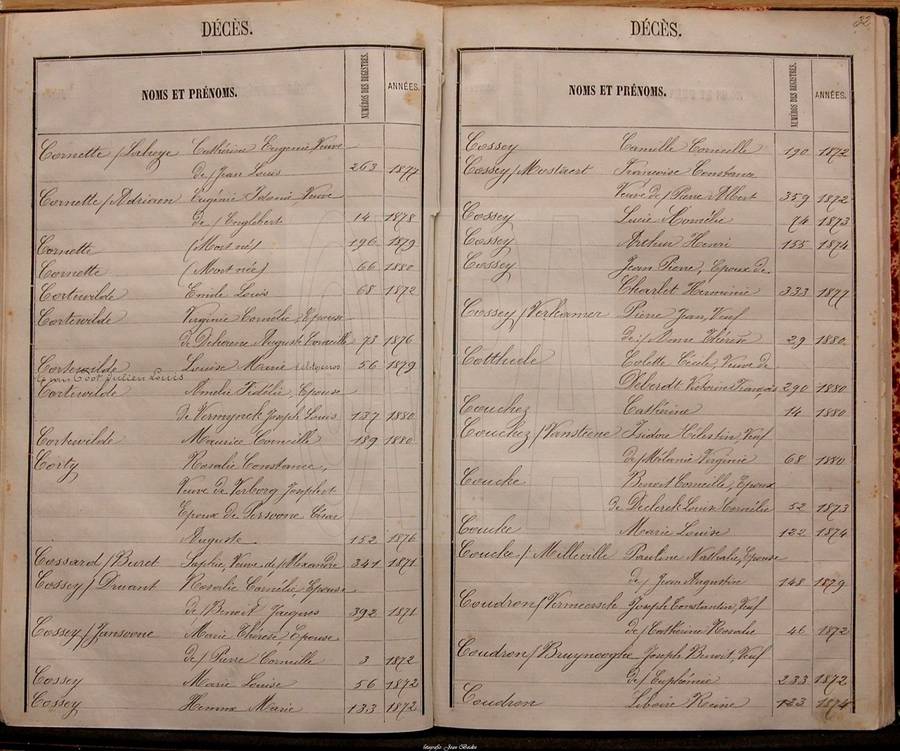 DÉCÈS.
NOMS ET PRÉNOMS. NUMÉROS DES REGISTRES. ANNÉES.
Cornette / Catherine Eugenie, Veuve
de / Jean Louis 263 1877
Cornette / Adriaen Eugénie Veuve
de / Englebert 14 1878
Cornette (Mort né) 196 1879
Cornette (Mort née) 66 1880
Cortewilde Emile Louis 68 1872
Cortewilde Virginie Cornélie, Epouse
de Dehorne Auguste Corneille 73 1876
Cortewilde Louise Marie 56 1879
Julien Louis
Cortewilde Amelie Fidélie, Epouse
de Vermynck Joseph Louis 137 1880
Cortewilde Maurice Corneille 189 1880
Corty Rosalie Constance,
Veuve de Verborg Josephet
Epoux de Persoone César
Auguste 152 1876
Cossard / Buret Sophie, Veuve de / Alexandre 341 1871
Cossey / Druant Rosalie Cornélie, Epouse
de / Benoit Jacques 392 1871
Cossey / Jansoone Marie Thérèse Epouse
de / Pierre Corneille 3 1872
Cossey Marie Louise 56 1872
Cossey Hemma Marie 133 1872
32
DÉCÈS.
NOMS ET PRÉNOMS. NUMÉROS DES REGISTRES. ANNÉES.
Cossey Camille Corneille 190 1872
Cossey / Mostaert Françoise Constance
Veuve de / Pierre Albert 359 1872
Cossey Lucie Cornélie 74 1873
Cossey Arthur Henri 155 1874
Cossey Jean Pierre, Epoux de
Charlet Herminie 333 1877
Cossey / Verhamer Pierre Jean, Veuf
de / Anne Thérèse 29 1880
Cottheele Colette Cécile, Veuve de
Deberdt Victorine François 290 1880
Couchez Cathérine 14 1880
Couchez / Vanstiene Isidore Célestin, Veuf
de / Mélanie Virginie 68 1880
Coucke Benoit Corneille, Epoux
de Declerck Louise Cornélie 52 1873
Coucke Marie Louise 122 1874
Coucke / Milleville Pauline Nathalie, Epouse
de / Jean Augustine 148 1879
Coudron / Vermeersch Joseph Constantin, Veuf
de / Catherine Rosalie 46 1872
Coudron / Bruynooghe Joseph Benoit, Veuf
de / Euphémie 233 1872
Coudron Liboire Reine 123 1874
fotografie Jean Baeke